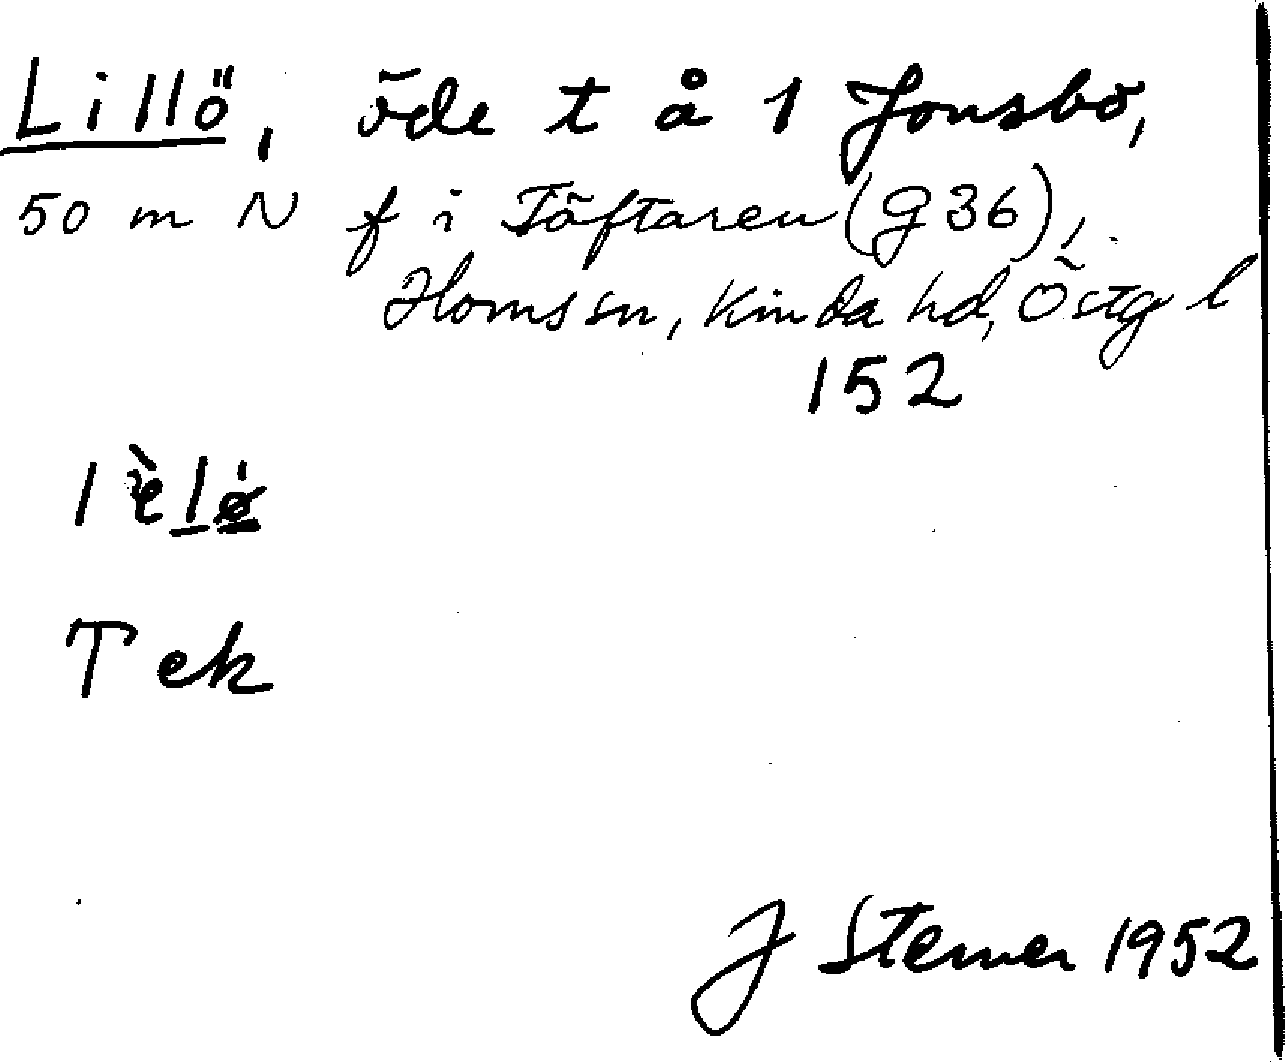 Lillö, öde t å 1 Jonsbo,
50 m N f i Täftaren (g 36),
Homs sn, Kinda hd, Östg l
152
Tek
J Sterner 1952